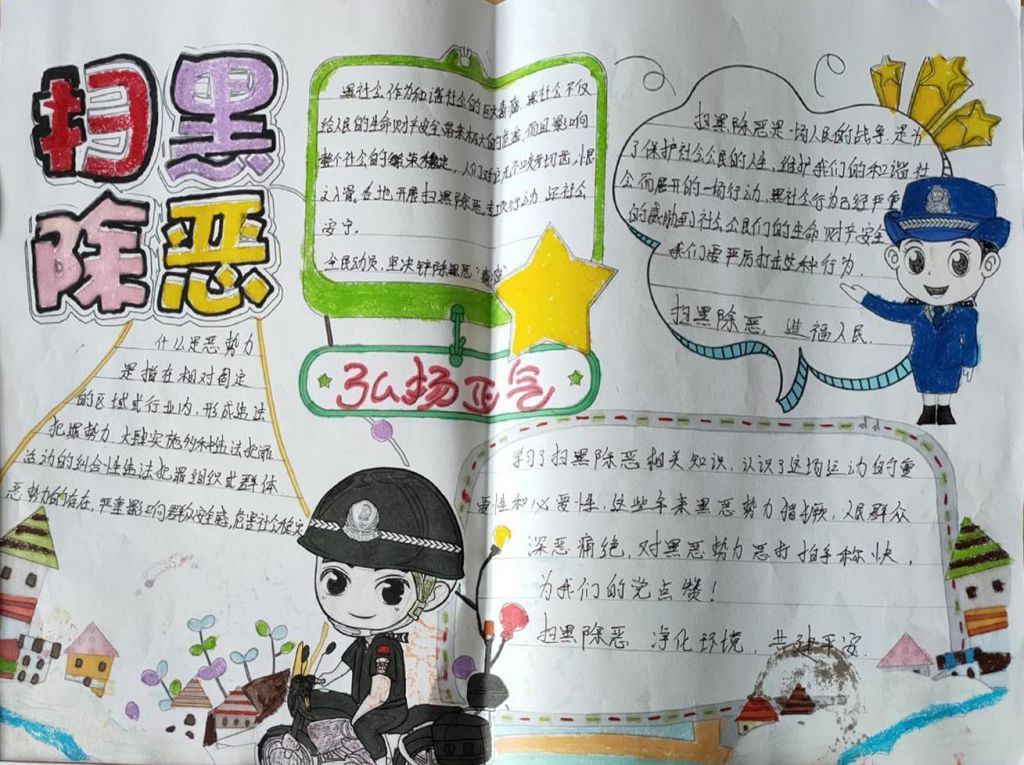 扫黑
除恶
黑社会作为和谐社会的巨大毒瘤,黑社会不仅
给人民的生命财产安全带来极大的危害,而且影响
整个社会的繁荣稳定,人们对这无不咬牙切齿,恨
之入骨。各地开展扫黑除恶专项行动,还社会
安宁。
全民动员,坚决铲除黑恶毒瘤
弘扬正气
扫黑除恶是一场人民的战争,是为
了保护社会公民的人生,维护我们的和谐社
会而展开的一场行动,黑社会行为已经严重
的威胁到社会公民们的生命财产安全
我们要严厉打击这种行为.
扫黑除恶,造福人民.
什么是恶势力
是指在相对固定
的区域或行业内,形成违法
犯罪势力,大肆实施各种违法犯罪
活动的纠合性违法犯罪组织或群体
恶势力的存在,严重影响群众安全感,危害社会稳定
学习了扫黑除恶相关知识,认识了这场运动的重
要性和必要性,这些年来黑恶势力猖撅,人民群众
深恶痛绝,对黑恶势力恶打拍手称快,
为我们的党点赞!
扫黑除恶,净化环境,共建平安.